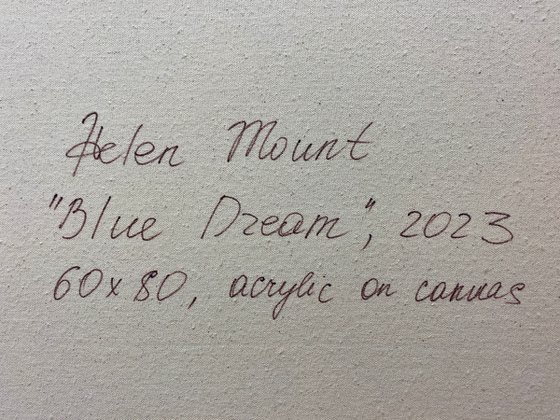 Helen Mount
"Blue Dream", 2023
60x80, acrylic on canvas